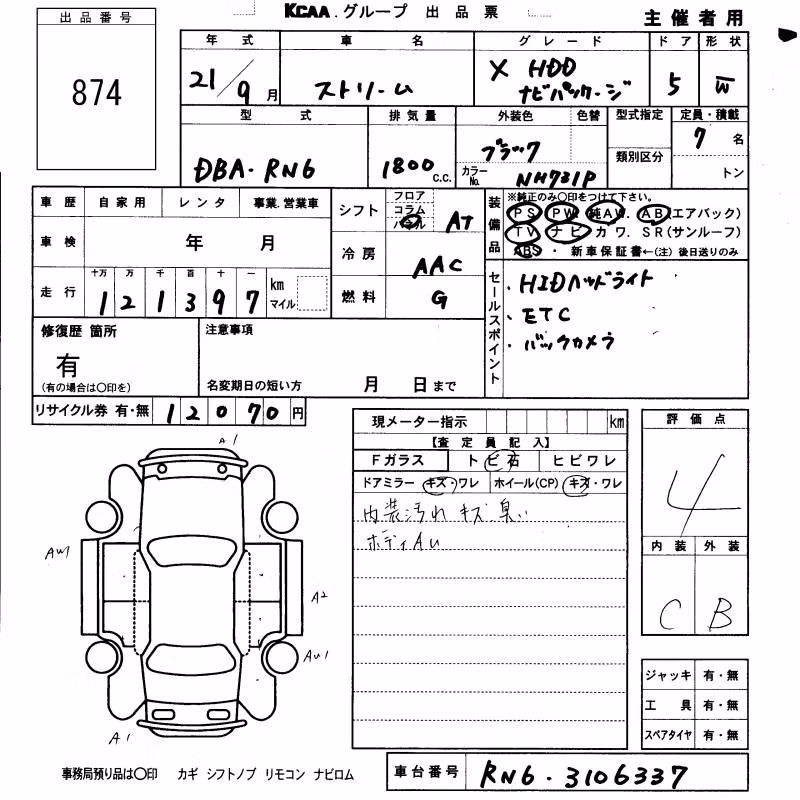 KCAA.グループ 出品票
主催者用
出品番号
874
年式 車名 グレード ドア 形状
21/9月 ストリーム X HDD ナビパッケージ 5 W
型式 排気量 外装色 色替 型式指定 定員・積載
DBA-RN6 1800c.c. ブラック 7名
カラーNo. NH731P 類別区分 トン
車歴 自家用 レンタ 事業.営業車
車検 年 月
走行 十万 万 千 百 十 一
1 2 1 3 9 7 km マイル
シフト フロア コラム パネル AT
冷房 AAC
燃料 G
装備品
※純正のみ○印をつけて下さい。
PS PW 純AW. AB(エアバック)
TV ナビ カワ. SR(サンルーフ)
ABS・ 新車保証書←(注)後日送りのみ
セールスポイント
・HIDヘッドライト
・ETC
・バックカメラ
修復歴 箇所
有
(有の場合は○印を)
注意事項
名変期日の短い方 月 日まで
リサイクル券 有・無 12070円
現メーター指示 km
【査定員記入】
Fガラス トビ石 ヒビワレ
ドアミラー キズ・ワレ ホイール(CP) キズ・ワレ
内装汚れ キズ 臭い
ボディAU
評価点
4
内装 外装
C B
ジャッキ 有・無
工具 有・無
スペアタイヤ 有・無
A1
AW1
A2
AU1
A1
事務局預り品は○印 カギ シフトノブ リモコン ナビロム
車台番号 RN6-3106337